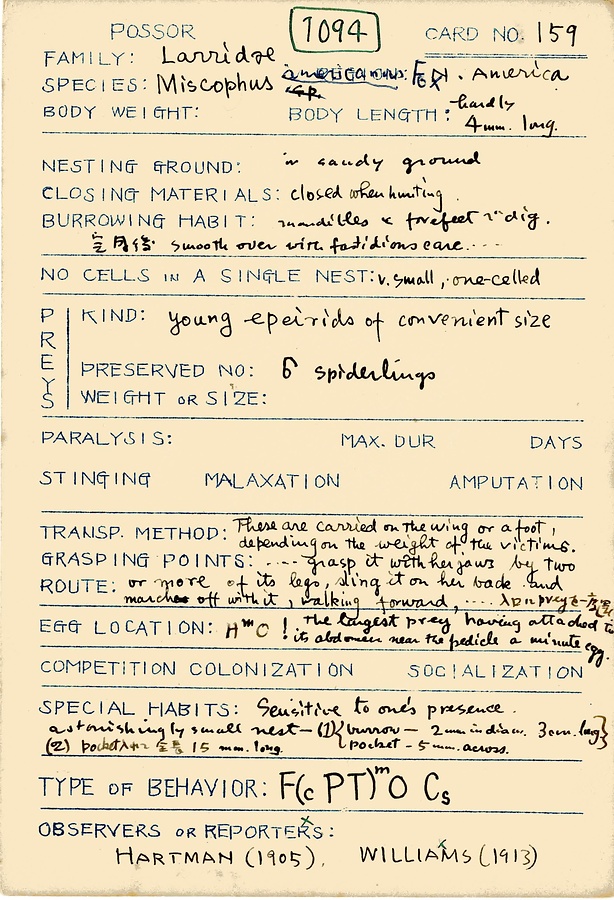 POSSOR 1094 CARD NO. 159
FAMILY: Larridae
SPECIES: Miscophus americanus: Fox. America
sp.
BODY WEIGHT: BODY LENGTH: hardly
4 mm. long.
NESTING GROUND: in sandy ground
CLOSING MATERIALS: closed when hunting.
BURROWING HABIT: mandibles & forefeet で dig.
smooth over with fastidious care....
NO CELLS IN A SINGLE NEST: v. small, one-celled
PREYS
KIND: young epeirids of convenient size
PRESERVED NO: 6 spiderlings
WEIGHT OR SIZE:
PARALYSIS: MAX. DUR DAYS
STINGING MALAXATION AMPUTATION
TRANSP. METHOD: These are carried on the wing or afoot,
depending on the weight of the victims.
GRASPING POINTS: .... grasp it with her jaws by two
ROUTE: or more of its legs, sling it on her back and
marches off with it, walking forward, .... 入口に prey を
EGG LOCATION: HmO! the largest prey having attached to
its abdomen near the pedicle a minute egg.
COMPETITION COLONIZATION SOCIALIZATION
SPECIAL HABITS: Sensitive to one's presence.
astonishingly small nest – (1) { burrow – 2 mm in diam. 3 cm. long }
(2) pocket 入れて 全長 15 mm. long. { pocket - 5 mm. across.
TYPE OF BEHAVIOR: F(c PT)mO Cs
OBSERVERS OR REPORTERS:
HARTMAN (1905), WILLIAMS (1913)